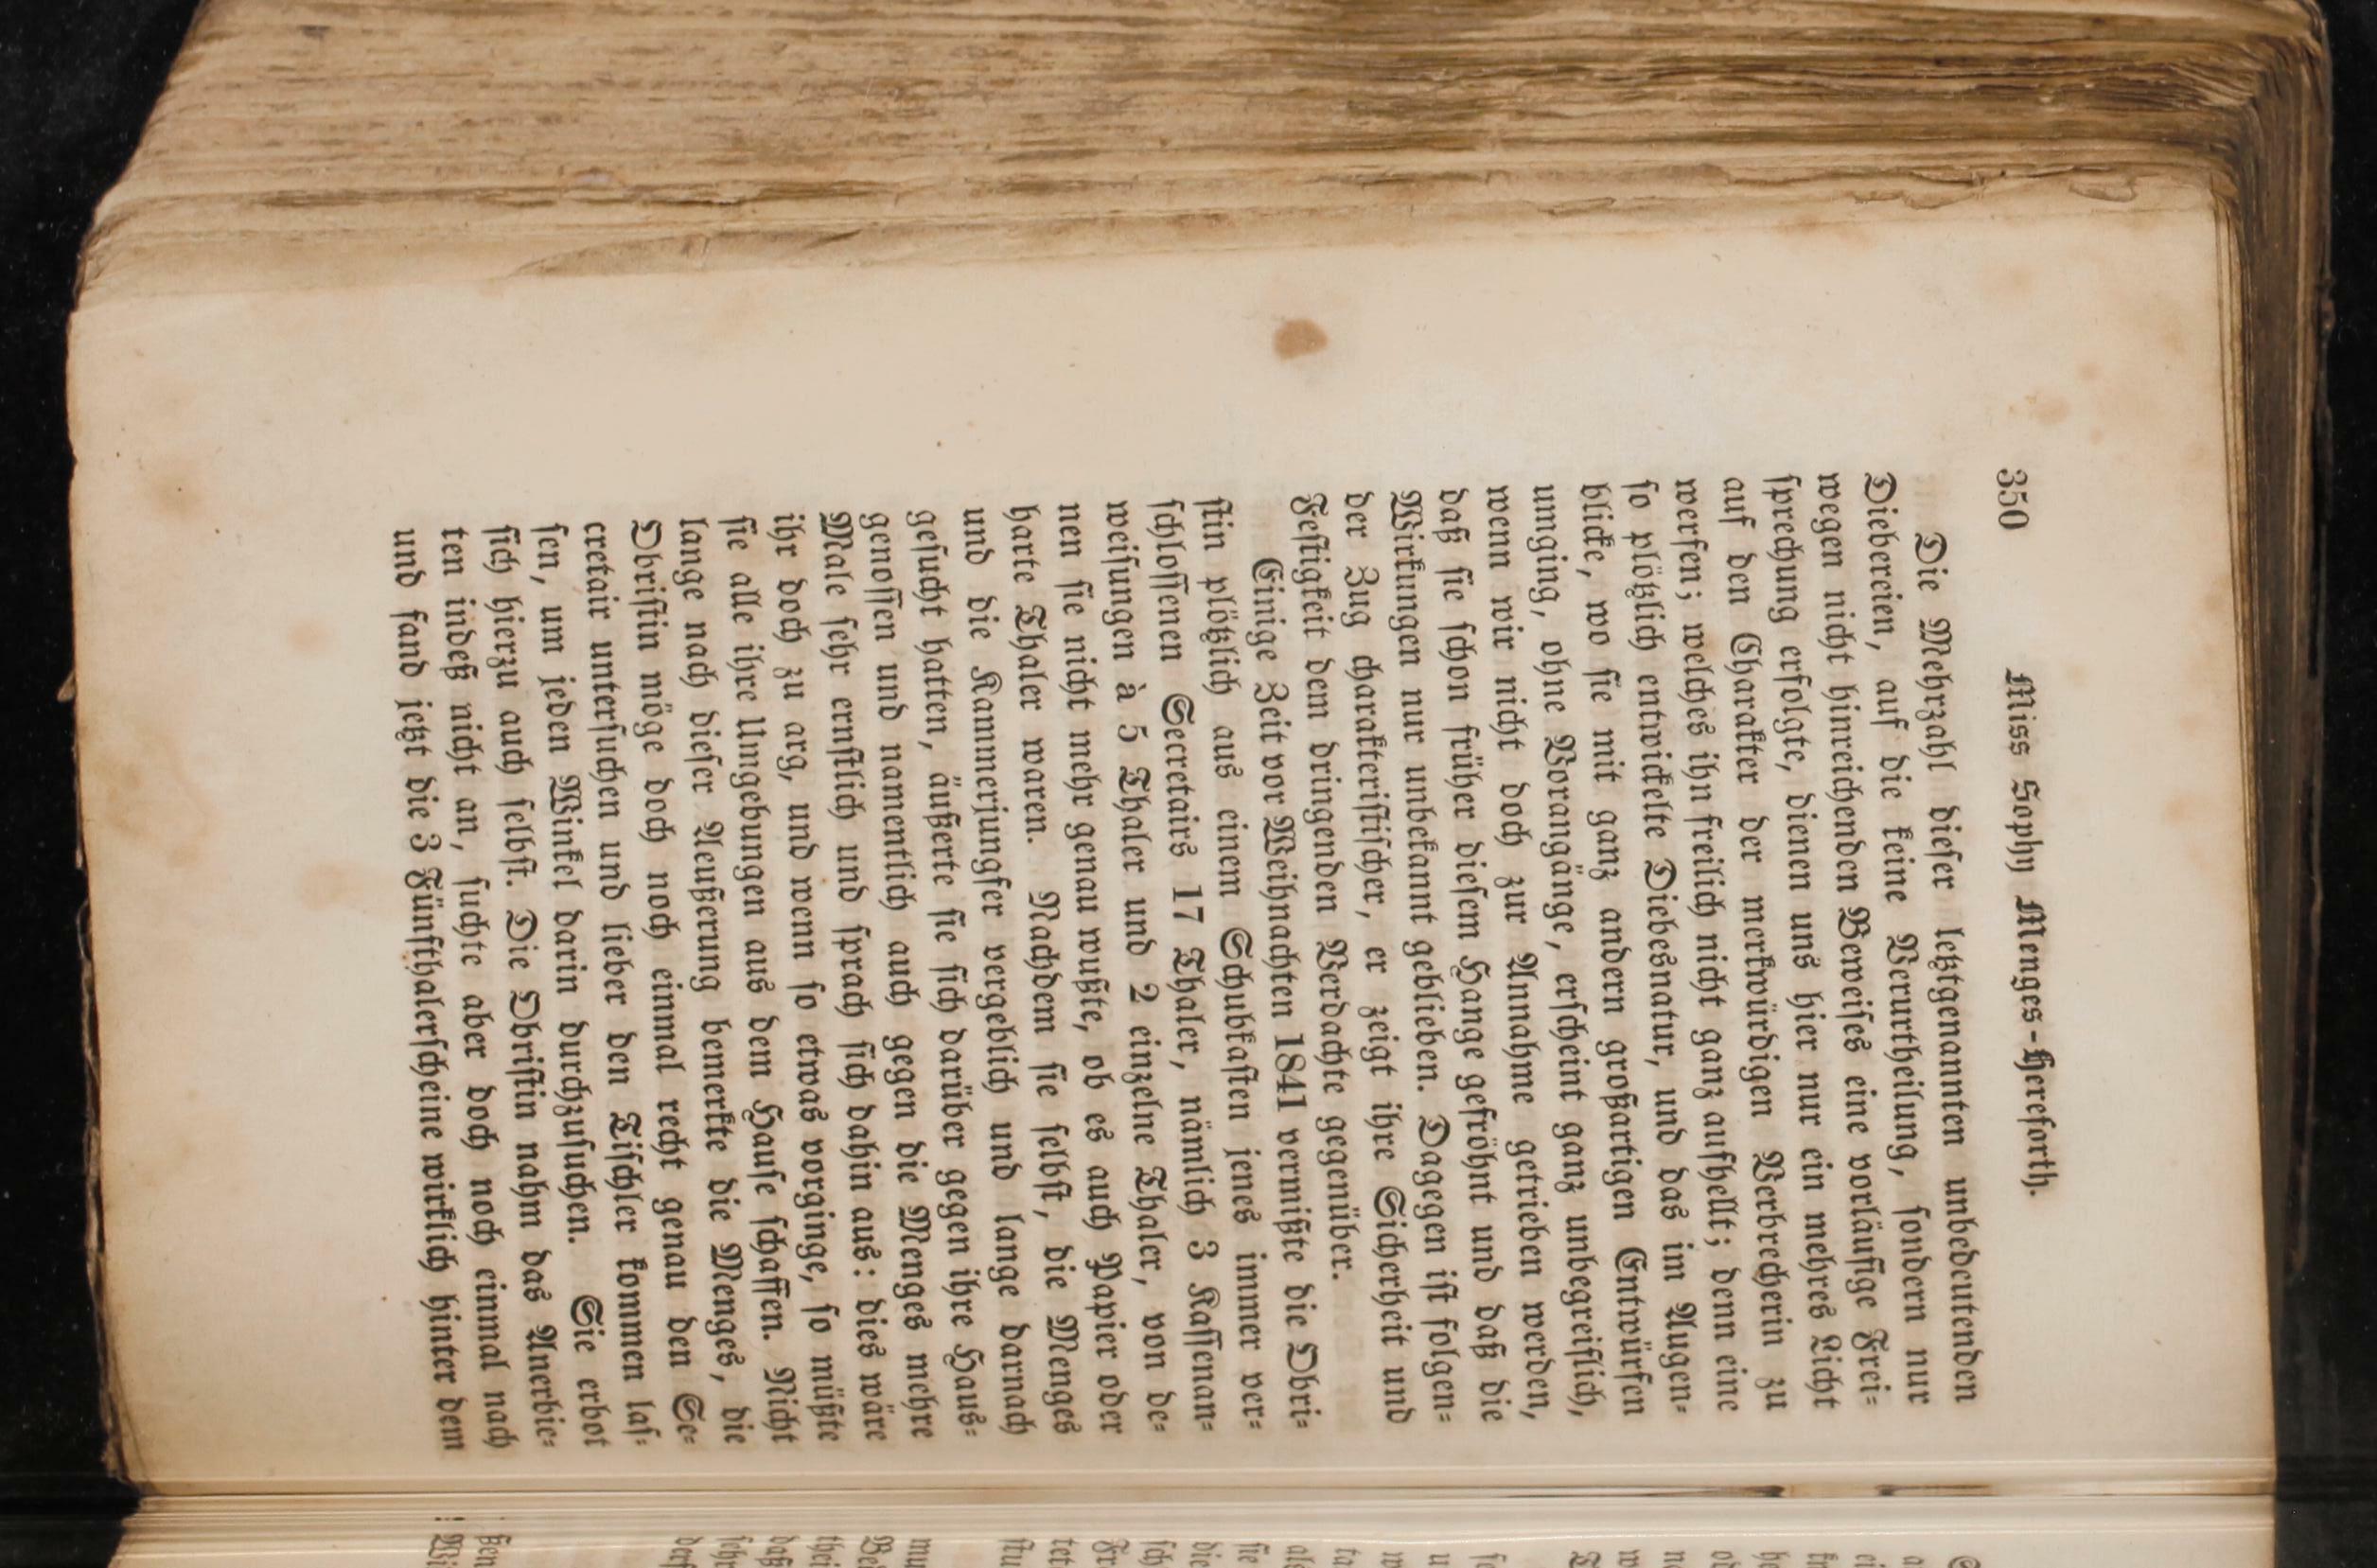 350 Miss Sophy Menges-Hereforth.
Die Mehrzahl dieſer letztgenannten unbedeutenden
Diebereien, auf die keine Verurtheilung, ſondern nur
wegen nicht hinreichenden Beweiſes eine vorläufige Frei-
ſprechung erfolgte, dienen uns hier nur ein mehres Licht
auf den Charakter der merkwürdigen Verbrecherin zu
werfen; welches ihn freilich nicht ganz aufhellt; denn eine
ſo plötzlich entwickelte Diebesnatur, und das im Augen-
blicke, wo ſie mit ganz andern großartigen Entwürfen
umging, ohne Vorangänge, erſcheint ganz unbegreiflich,
wenn wir nicht doch zur Annahme getrieben werden,
daß ſie ſchon früher dieſem Hange gefröhnt und daß die
Wirkungen nur unbekannt geblieben. Dagegen iſt folgen-
der Zug charakteriſtiſcher, er zeigt ihre Sicherheit und
Feſtigkeit dem dringenden Verdachte gegenüber.
Einige Zeit vor Weihnachten 1841 vermißte die Obri-
ſtin plötzlich aus einem Schubkaſten jenes immer ver-
ſchloſſenen Secretairs 17 Thaler, nämlich 3 Kaſſenan-
weiſungen à 5 Thaler und 2 einzelne Thaler, von de-
nen ſie nicht mehr genau wußte, ob es auch Papier oder
harte Thaler waren. Nachdem ſie ſelbſt, die Menges
und die Kammerjungfer vergeblich und lange darnach
geſucht hatten, äußerte ſie ſich darüber gegen ihre Haus-
genoſſen und namentlich auch gegen die Menges mehre
Male ſehr ernſtlich und ſprach ſich dahin aus: dies wäre
ihr doch zu arg, und wenn ſo etwas vorginge, ſo müßte
ſie alle ihre Umgebungen aus dem Hauſe ſchaffen. Nicht
lange nach dieſer Aeußerung bemerkte die Menges, die
Obriſtin möge doch noch einmal recht genau den Se-
cretair unterſuchen und lieber den Tiſchler kommen laſ-
ſen, um jeden Winkel darin durchzuſuchen. Sie erbot
ſich hierzu auch ſelbſt. Die Obriſtin nahm das Anerbie-
ten indeß nicht an, ſuchte aber doch noch einmal nach
und fand jetzt die 3 Fünfthalerſcheine wirklich hinter dem